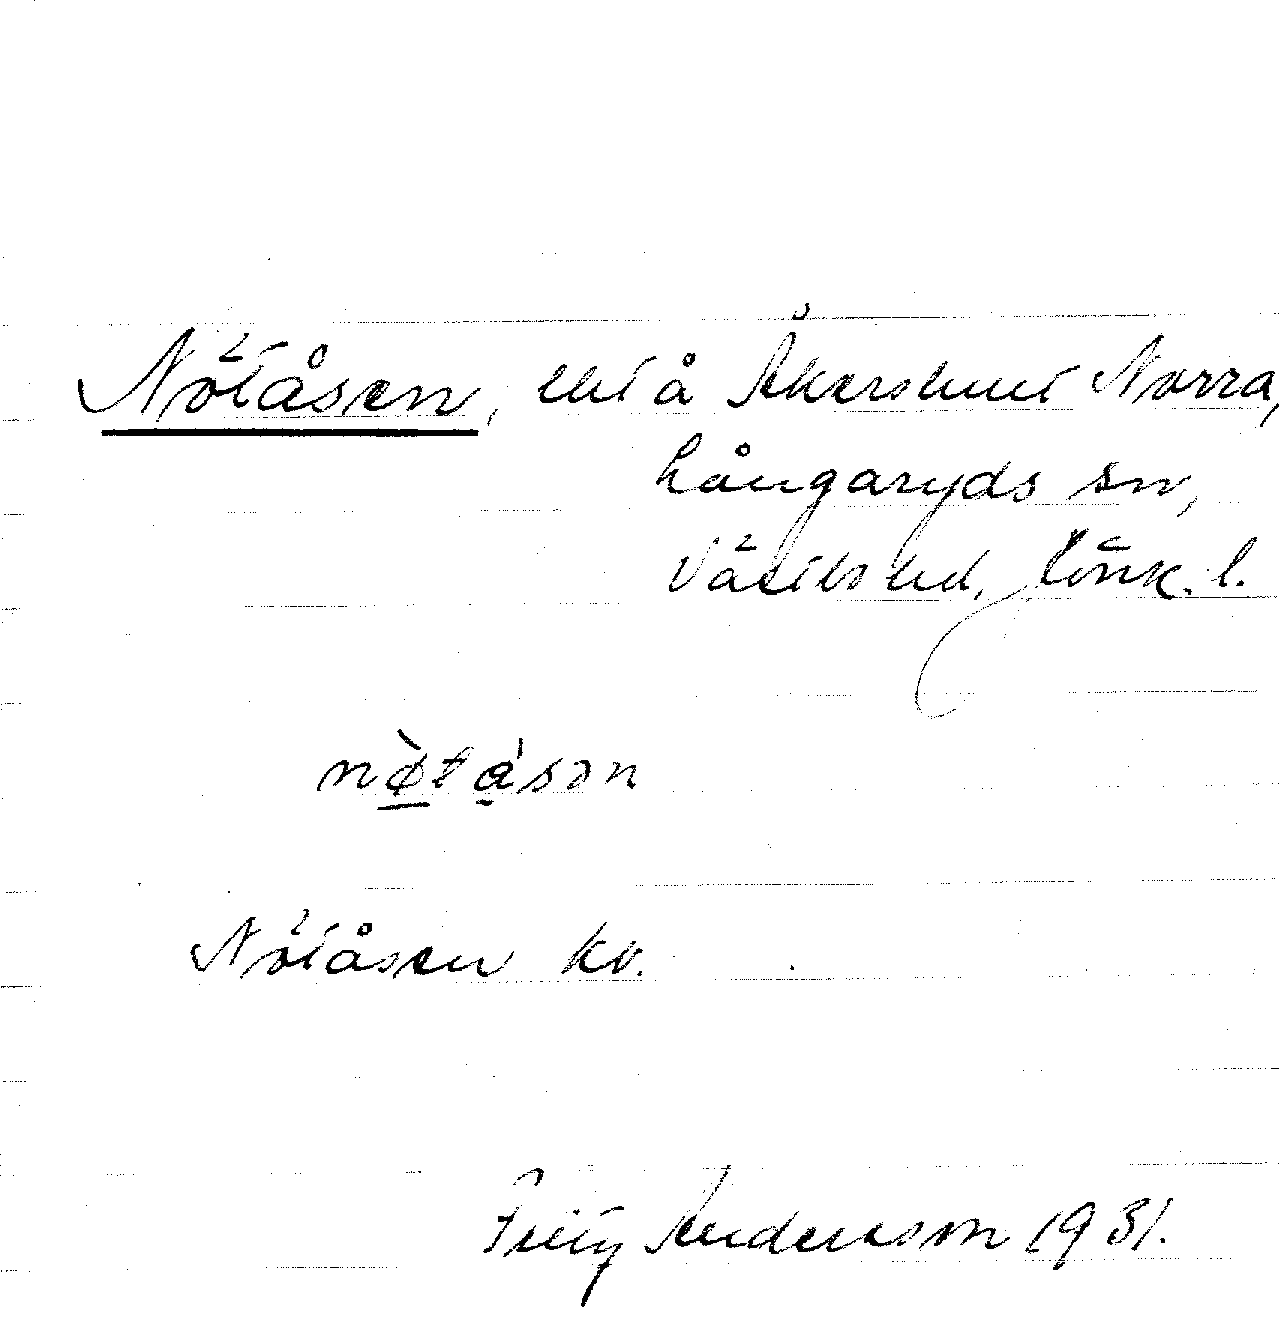 Nötåsen, lht å Åkershult Norra,
Långaryds sn,
Västbo hd, Jönk. l.
nø̀tɑ́sən
Nötåsen kv.
Andersson 1931.